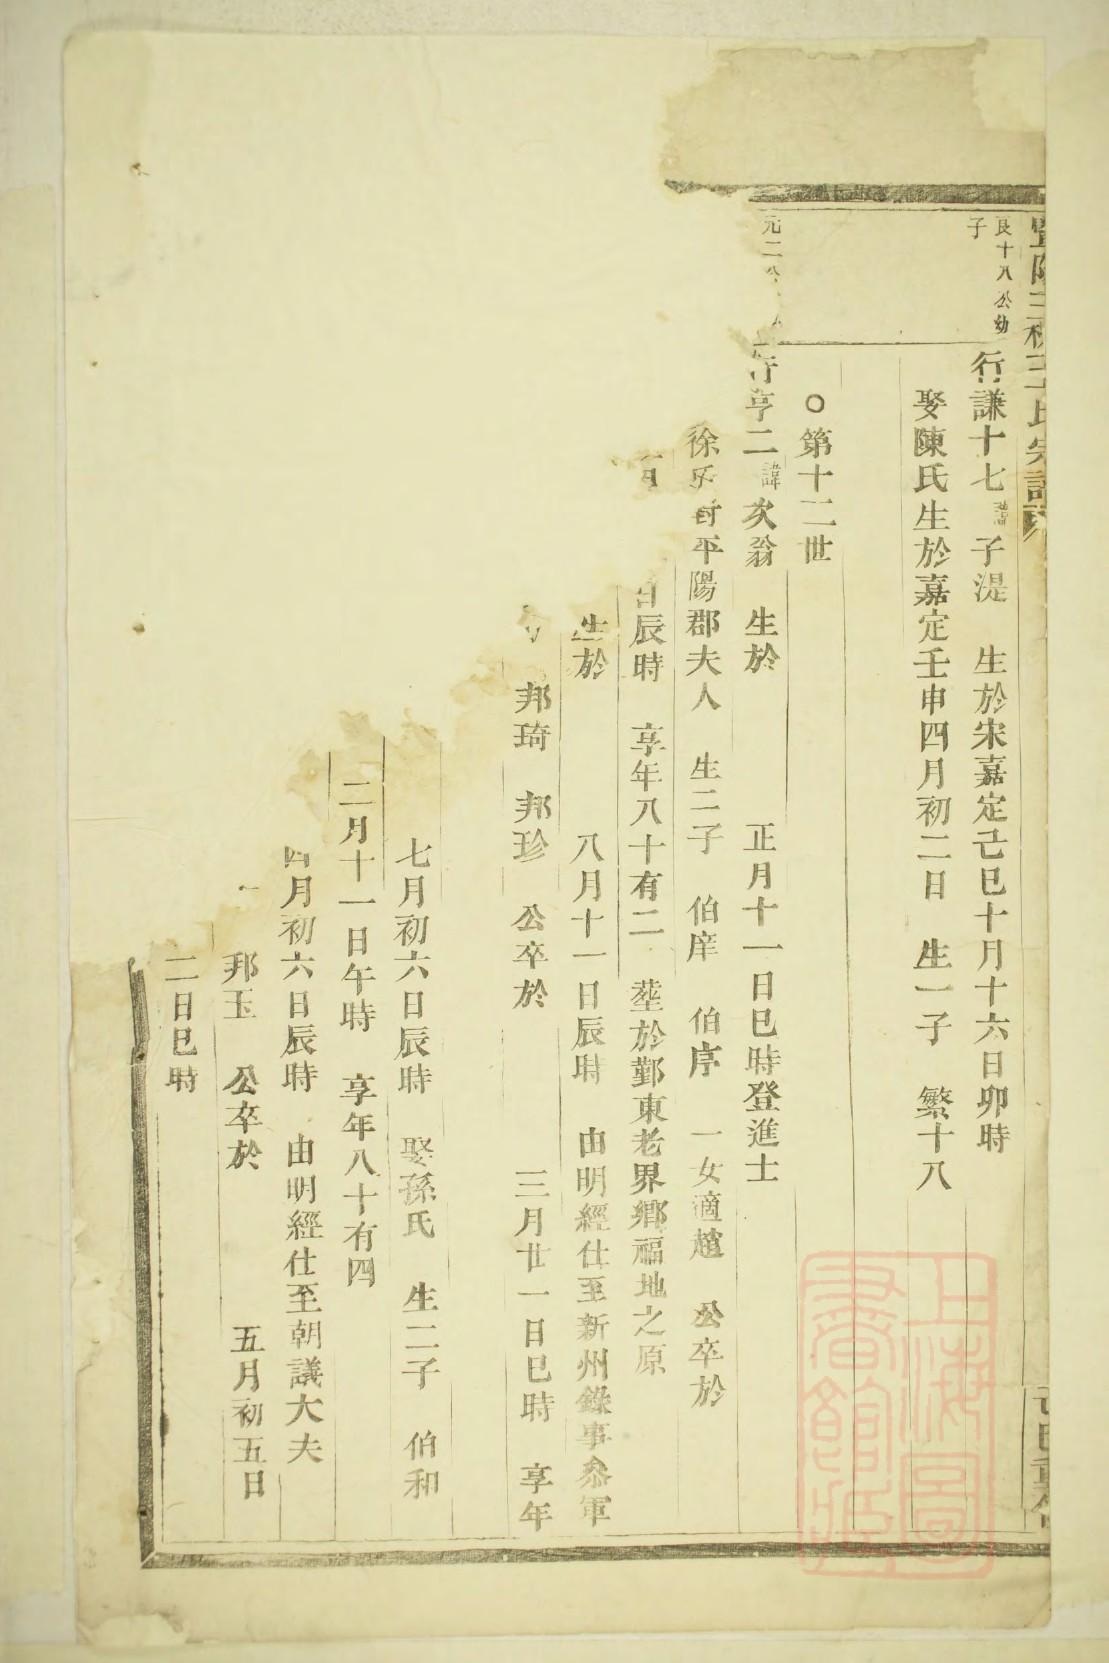 良十八公幼
子
行謙十七諱子湜 生於宋嘉定己巳十月十六日卯時
娶陳氏生於嘉定壬申四月初二日 生一子 繁十八
○第十二世
元二公
行亨二諱次翁 生於 正月十一日巳時登進士
徐 封平陽郡夫人 生二子 伯庠 伯序 一女適趙 公卒於
日辰時 享年八十有二 塟於鄞東老界鄉福地之原
生於 八月十一日辰時 由明經仕至新州錄事叅軍
邦琦 邦珍 公卒於 三月廿一日巳時 享年
七月初六日辰時 娶孫氏 生二子 伯和
二月十一日午時 享年八十有四
四月初六日辰時 由明經仕至朝議大夫
邦玉 公卒於 五月初五日
二日巳時
上海圖書館藏